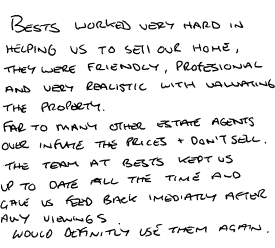 BESTS WORKED VERY HARD IN
HELPING US TO SELL OUR HOME,
THEY WERE FRIENDLY, PROFESIONAL
AND VERY REALISTIC WITH VALUATING
THE PROPERTY.
FAR TO MANY OTHER ESTATE AGENTS
OVER INFLATE THE PRICES + DON'T SELL.
THE TEAM AT BESTS KEPT US
UP TO DATE ALL THE TIME AND
GAVE US FEED BACK IMEDIATLY AFTER
ANY VIEWINGS.
WOULD DEFINITLY USE THEM AGAIN.